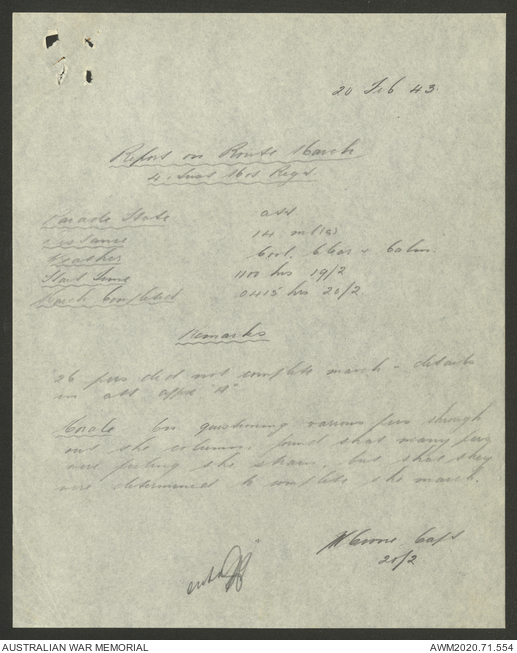 20 Feb 43.
Report on Route March
4. Aust Mot Regt
Parade State att
Distance 14 m
Weather Cool. Clear & Calm.
Start Time 1100 hrs 19/2
March Completed 0415 hrs 20/2
Remarks
26 pers did not complete march - details
in att appx "A"
Morale On questioning various pers through
out the column, found that many pers
were feeling the strain, but that they
were determined to complete the march.
Capt
20/2
AUSTRALIAN WAR MEMORIAL
AWM2020.71.554